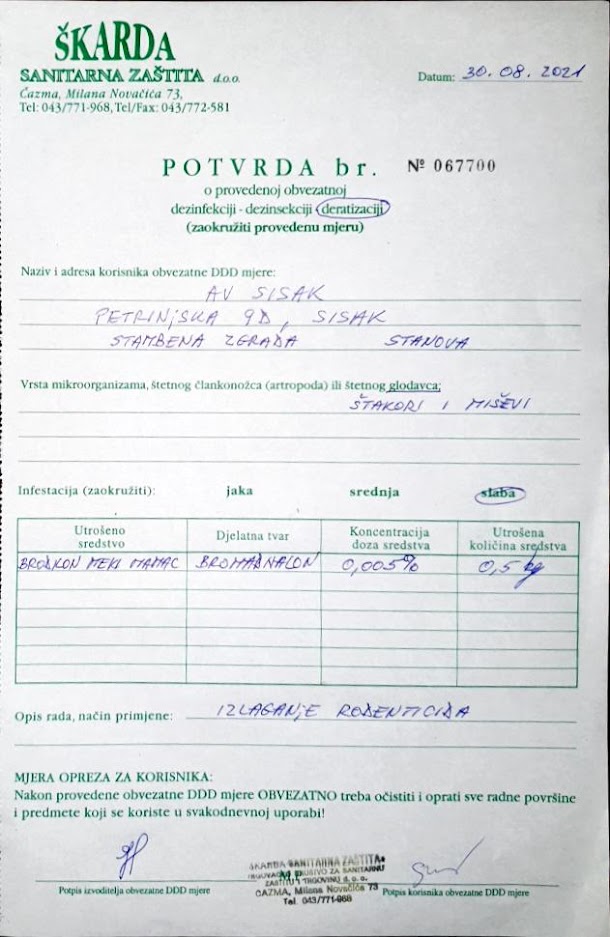 ŠKARDA
SANITARNA ZAŠTITA d.o.o.
Čazma, Milana Novačića 73,
Tel: 043/771-968, Tel/Fax: 043/772-581
Datum: 30. 08. 2021
POTVRDA br. Nº 067700
o provedenoj obvezatnoj
dezinfekciji - dezinsekciji deratizaciji
(zaokružiti provedenu mjeru)
Naziv i adresa korisnika obvezatne DDD mjere:
AV SISAK
PETRINJSKA 9D, SISAK
STAMBENA ZGRADA STANOVA
Vrsta mikroorganizama, štetnog člankonožca (artropoda) ili štetnog glodavca;
ŠTAKORI I MIŠEVI
Infestacija (zaokružiti): jaka srednja slaba
Utrošeno sredstvo Djelatna tvar Koncentracija doza sredstva Utrošena količina sredstva
BRODKON MEKI MAMAC BROMADNALON 0,005% 0,5 kg
Opis rada, način primjene: IZLAGANJE RODENTICIDA
MJERA OPREZA ZA KORISNIKA:
Nakon provedene obvezatne DDD mjere OBVEZATNO treba očistiti i oprati sve radne površine
i predmete koji se koriste u svakodnevnoj uporabi!
ŠKARDA SANITARNA ZAŠTITA
DRUŠTVO ZA SANITARNU
ZAŠTITU I TRGOVINU d. o. o.
ČAZMA, Milana Novačića 73
Tel. 043/771-968
Potpis izvoditelja obvezatne DDD mjere M.P. Potpis korisnika obvezatne DDD mjere